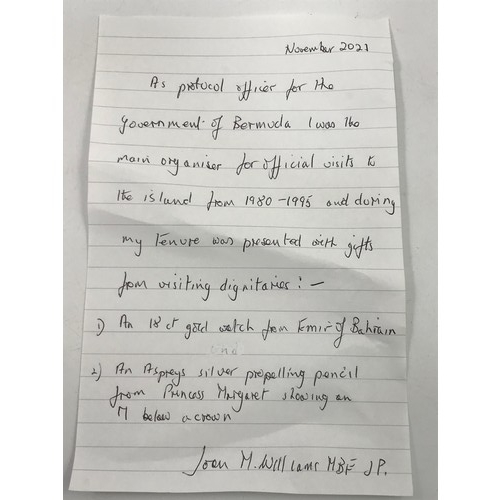 November 2021
As protocol officer for the
Government of Bermuda I was the
main organiser for official visits to
the island from 1980-1995 and during
my tenure was presented with gifts
from visiting dignitaries:-
1) An 18 ct gold watch from Emir of Bahrain
and
2) An Aspreys silver propelling pencil
from Princess Margaret showing an
M below a crown
Joan M. Williams MBE JP.